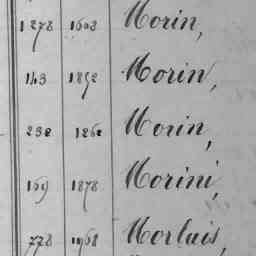 1278 1608 Morin,
143 1892 Morin,
232 1262 Morin,
169 1878 Morini,
778 1968 Morlais,